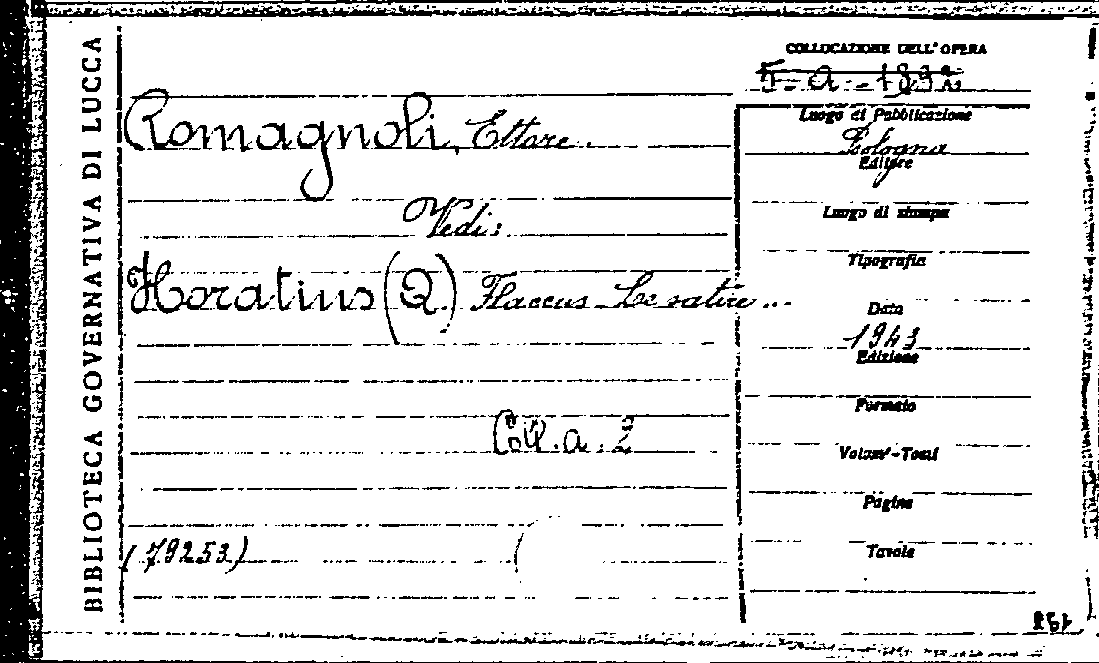 BIBLIOTECA GOVERNATIVA DI LUCCA
COLLOCAZIONE DELL'OPERA
5-a-189
Romagnoli, Ettore.
Vedi:
Horatius (Q.) Flaccus - Le satire...
Coll. a. 2
(79253)
Luogo di Pubblicazione
Bologna
Editore
Luogo di stampa
Tipografia
Data
1943
Edizione
Formato
Volumi-Tomi
Pagine
Tavole